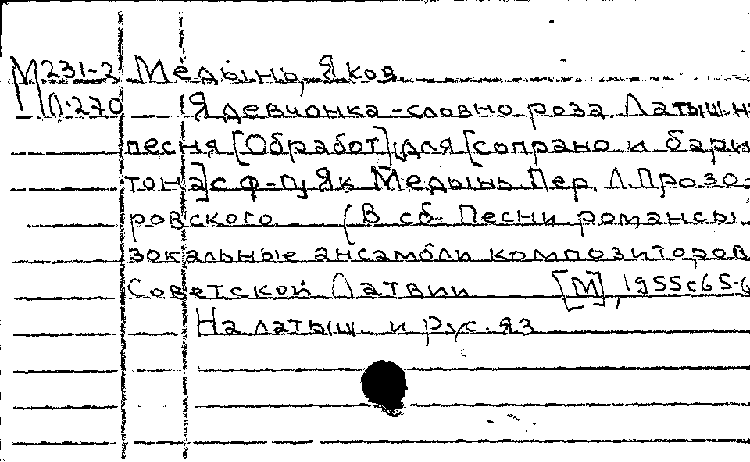 М231-2 Медынь, Яков
П-270 Я девчонка - словно роза Латыш. н
песня [Обработ] для [сопрано и бари
тона] с ф-п, Як Медынь Пер. Л. Прозо-
ровского (В сб. Песни романсы
вокальные ансамбли композиторов
Советской Латвии [М], 1955 с 65-6
На латыш и рус. яз